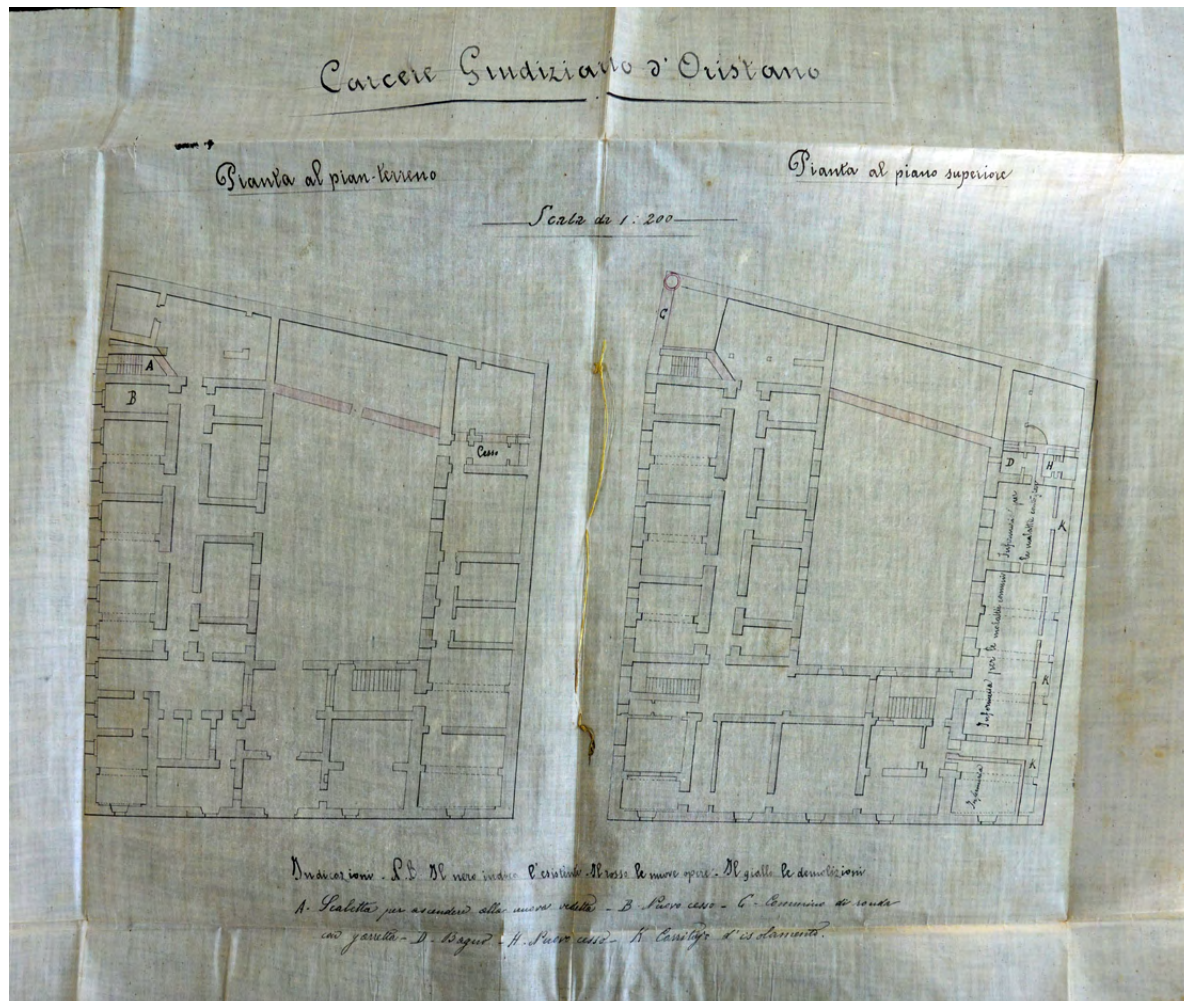 Carcere Giudiziario d'Oristano
Pianta al pian-terreno
Pianta al piano superiore
Scala di 1:200
A
B
Cesso
G
D
H
Infermeria per
le malattie contagiose
K
Infermeria per le malattie comuni
K
K
Infermeria
Indicazioni - N.B. Il nero indica l'esistente - Il rosso le nuove opere - Il giallo le demolizioni
A. Scaletta per ascendere alla nuova vedetta - B. Nuovo cesso - G. Cammino di ronda
con garretta - D. Bagno - H. Nuovo cesso - K. d'isolamento.